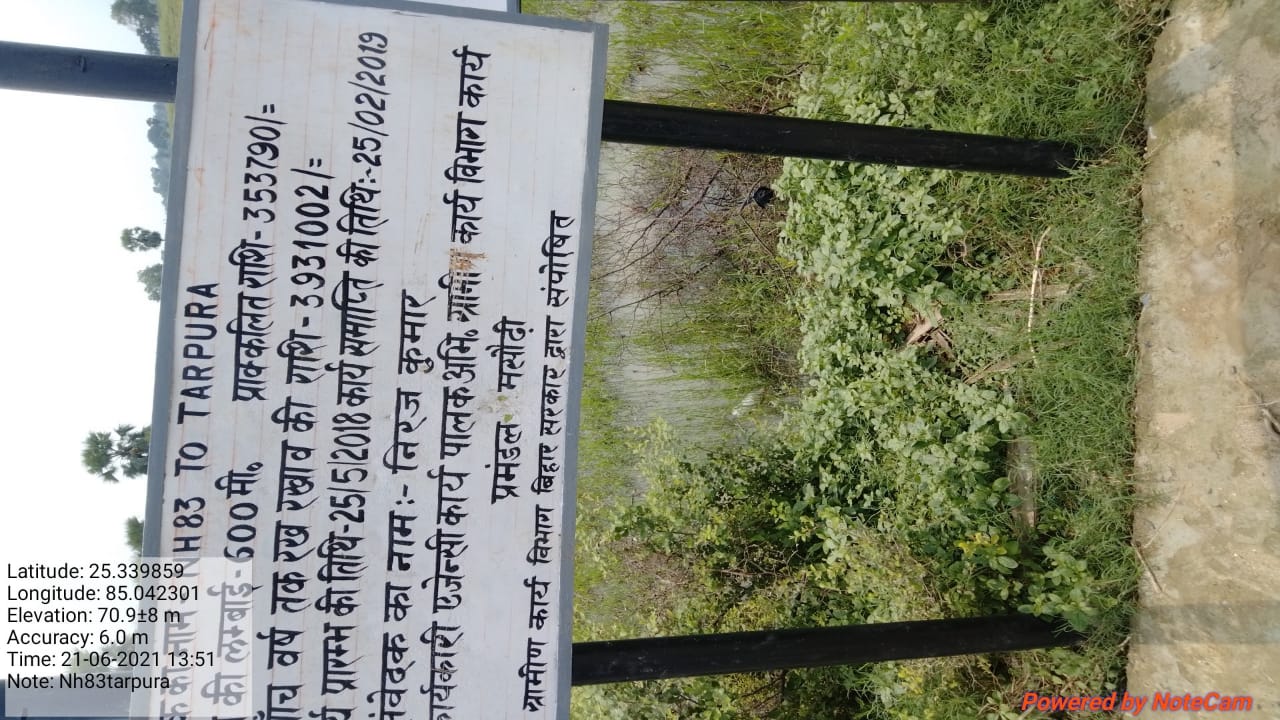 का नाम - NH83 TO TARPURA
की लम्बाई - 600मी॰ प्राक्कलित राशि - 353790/=
पाँच वर्ष तक रख रखाव की राशि - 3931002/=
प्रारम्भ की तिथि-25/5/2018 कार्य समाप्ति की तिथि:-25/02/2019
संवेदक का नाम :- निरज कुमार
कार्यकारी एजेन्सी कार्य पालक अभि॰ ग्रामीण कार्य विभाग कार्य
प्रमंडल मसौढ़ी
ग्रामीण कार्य विभाग बिहार सरकार द्वारा संपोषित
Latitude: 25.339859
Longitude: 85.042301
Elevation: 70.9±8 m
Accuracy: 6.0 m
Time: 21-06-2021 13:51
Note: Nh83tarpura
Powered by NoteCam